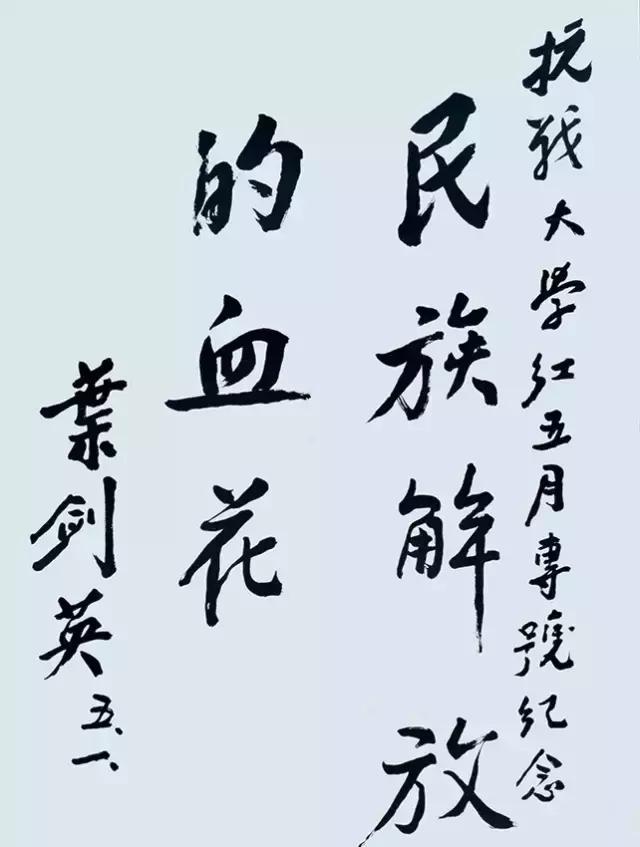 抗战大學红五月專號纪念
民族解放
的血花
葉剑英
五、一、